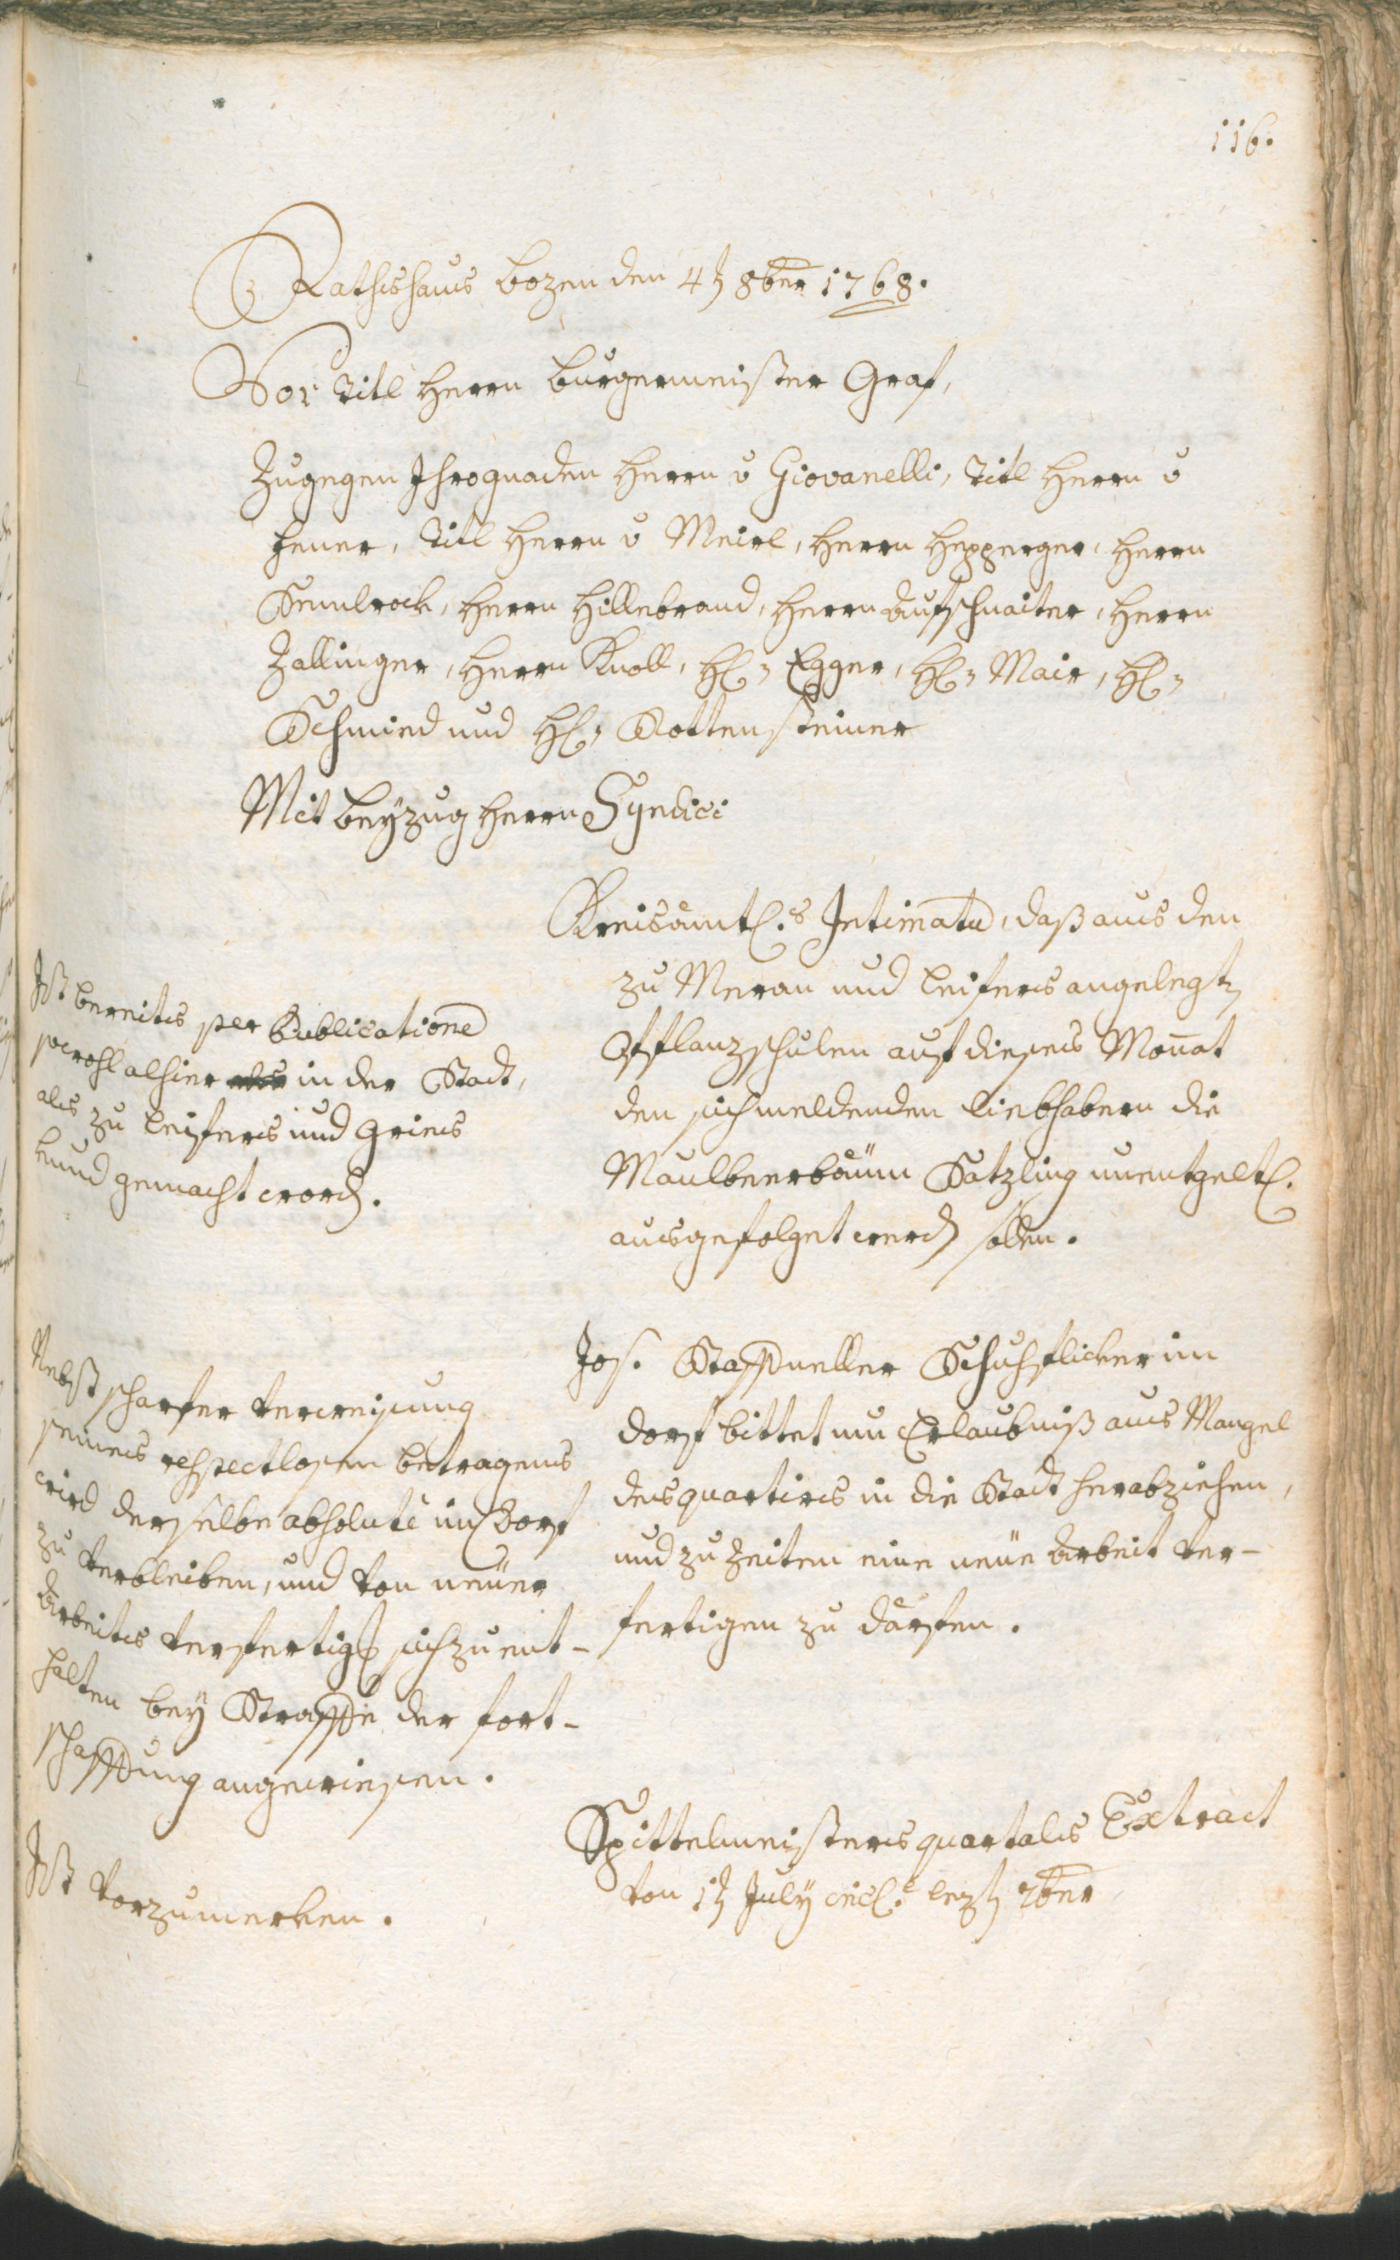 116.
Rathshaus bozen den 4ten 8ber 1768.
Vor Titl Herrn burgermeister Graf,
Zugegen Ihrognaden Herrn v Giovanelli, Titl Herrn v
Feuer, Titl Herrn v Meirl, Herrn Hepperger, Herrn
Semlrock, Herrn Hillebrand, Herrn Aufschnaiter, Herrn
Zallinger, Herrn Knoll, H: Egger, H: Mair, H:
Schmied und H: Kottensteiner
Mit beyzug Herrn Syndici
Kreisämtl.s Intimatu, daß aus den
zu Meran und Leifers angelegten
Pflanzschulen auf dieses Monat
den sich meldenden liebhabern die
Maulbeerbäum Sätzling unentgeltl.
ausgefolget werden sollen.
Ist bereits per Publicatione
sowohl alhier in der Stadt,
als zu Leifers und Gries
kund gemacht worden.
Jos. Staffneller Schuhflicker im
dorf bittet um Erlaubniß aus Mangel
des quartirs in die Stadt herabziehen,
und zu Zeiten eine neüe Arbeit ver-
fertigen zu dürfen.
Nebst scharfer verweisung
seines respectlosen betragens
wird derselbe absolutè im Dorf
zu verbleiben, und von neüer
Arbeits verfertigung sich zu ent-
halten bey Straffe der fort-
schaffung angewiesen.
Spittelmeisters quartals Extract
von 1ten July incl. lezten 7ber
Ist vorzumerken.